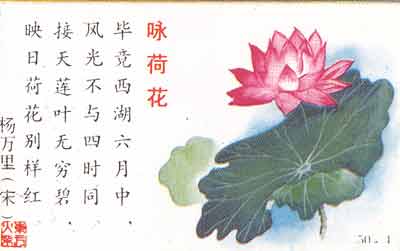 咏荷花
毕竟西湖六月中，
风光不与四时同．
接天莲叶无穷碧，
映日荷花别样红
杨万里（宋）
50-4